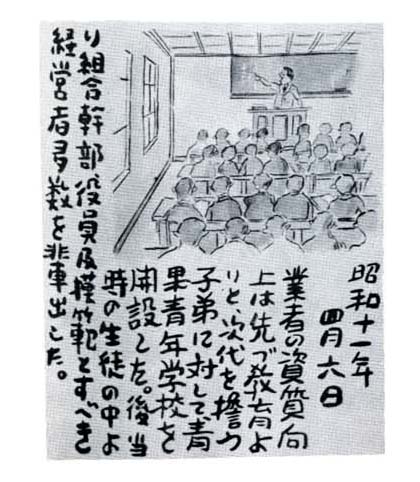 昭和十一年
四月六日
業者の資質向
上は先づ教育よ
りと、次代を擔う
子弟に対して、青
果青年学校を
開設した。後当
時の生徒の中よ
り組合幹部、役員及模範とすべき
経営者多数を輩出した。